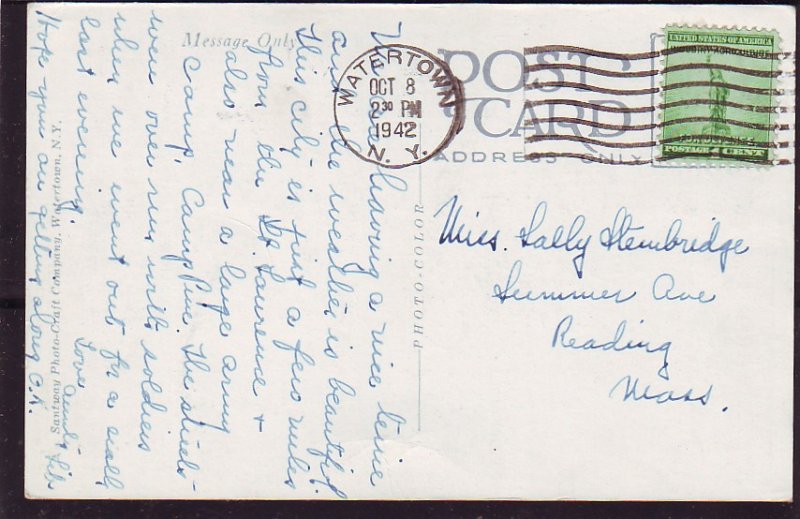 Message Only
POST
CARD
ADDRESS ONLY
WATERTOWN
OCT 8
2 30 PM
1942
N. Y.
UNITED STATES OF AMERICA
FOR DEFENSE
POSTAGE 1 CENT
PHOTO-COLOR
Santway Photo-Craft Company, Watertown, N.Y.
having a nice time
and the weather is beautiful
This city is just a few miles
from the St. Lawrence &
also near a large army
camp, Camp Pine. The streets
were over run with soldiers
when we went out for a walk
last evening.
Love
Aunt Lib
Hope you are getting along O.K.
Miss. Sally Stembridge
Summer Ave
Reading
Mass.